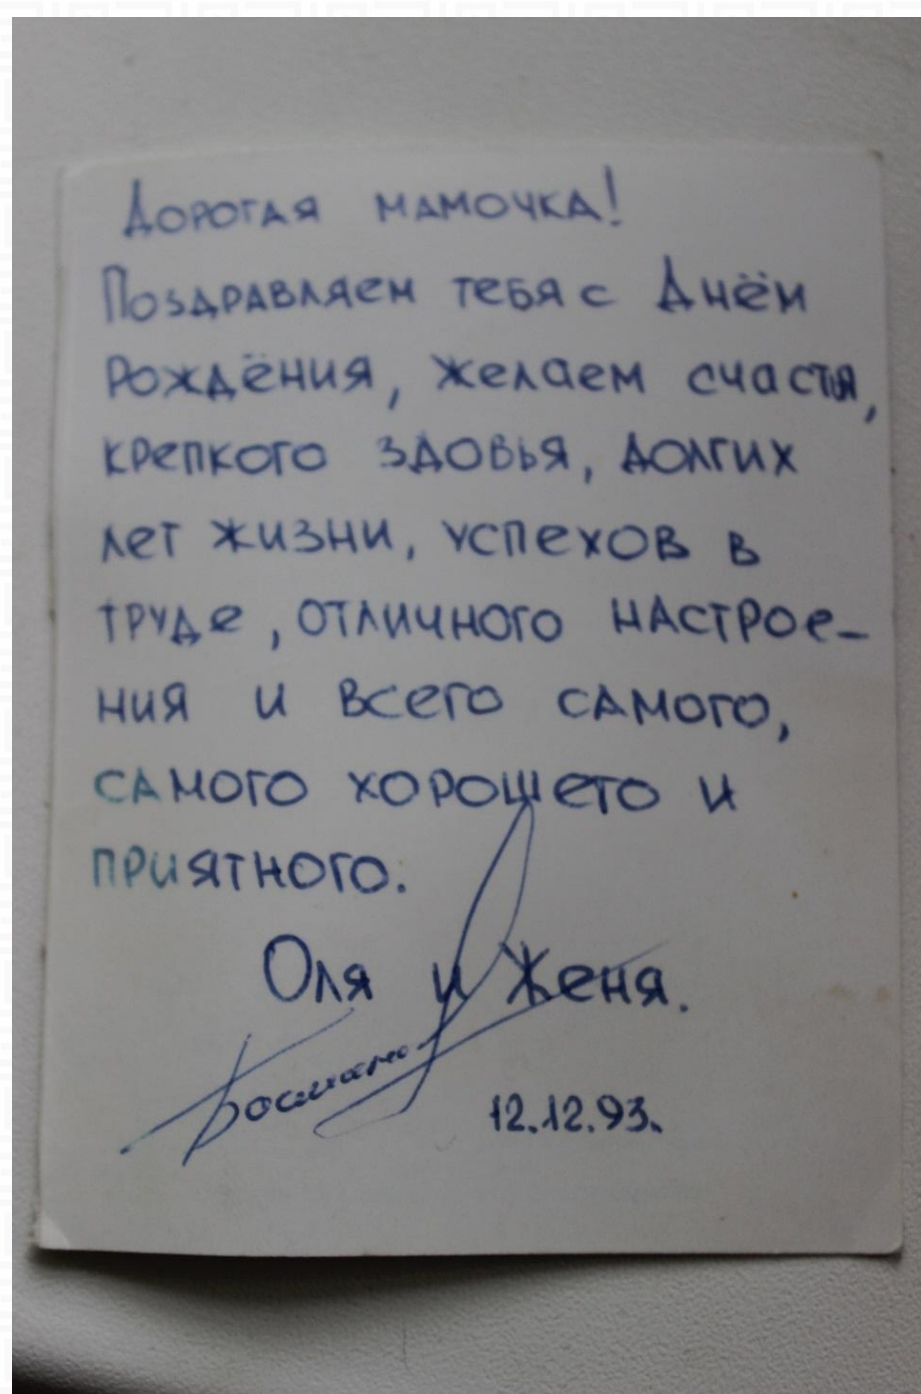 Дорогая мамочка!
Поздравляем тебя с Днём
Рождёния, желаем счастья,
крепкого здовья, долгих
лет жизни, успехов в
труде, отличного настрое-
ния и всего самого,
самого хорошего и
приятного.
Оля и Женя.
12.12.93.